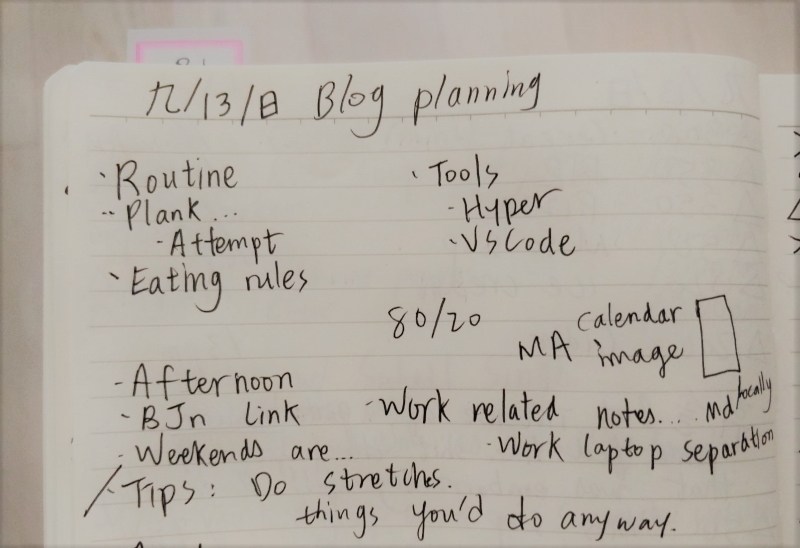 九/13/日 Blog planning
· Routine
-- Plank...
- Attempt
· Eating rules
· Tools
- Hyper
- VSCode
80/20
calendar
MA image
- Afternoon
- BJn link
- Weekends are...
- Work related notes.... md locally
- Work laptop separation
/ - Tips: Do stretches.
things you'd do anyway.